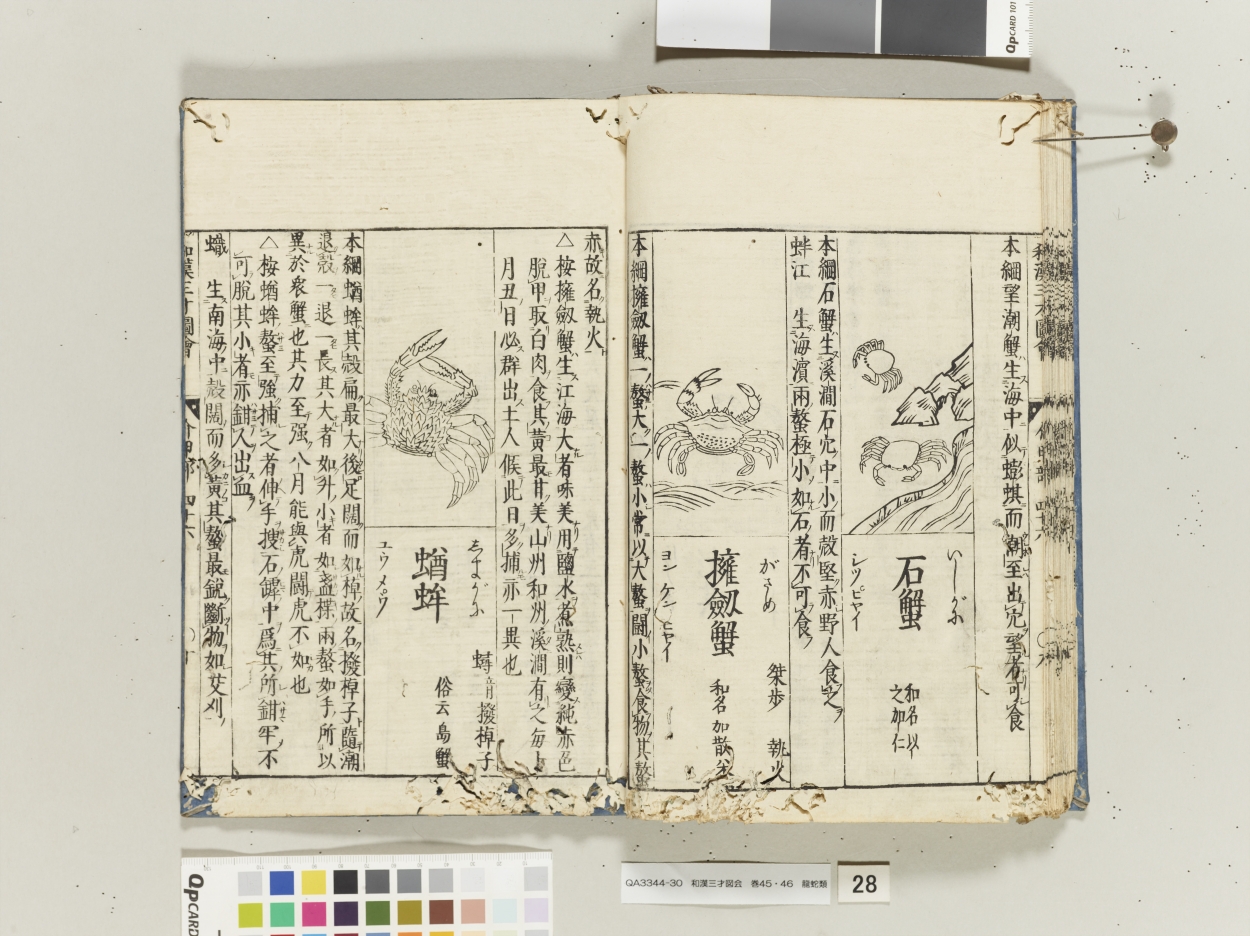 本綱望潮蟹生海中似蟛蜞而潮至出穴望者可食
石蟹
いしがに
シツピヤイ
和名以
之加仁
本綱石蟹生溪澗石穴中小而殼堅赤野人食之
蚌江 生海濱兩螯極小如石者不可食
擁劒蟹
がざめ
ヨン ケン ヒヤイ
桀歩 執火
和名加散
本綱擁劒蟹一螯大一螯小常以大螯闘小螯食物其螯
赤故名執火
△按擁劒蟹生江海大者味美用鹽水煮熟則變純赤色
脫甲取白肉食其黄最甘美山州和州溪澗有之每
月丑日必群出土人候此日多捕亦一異也
蝤蛑
しまがに
ユウ メ゜ウ
蟳音 撥棹子
俗云島蟹
本綱蝤蛑其殼扁最大後足闊而如棹故名撥棹子隨潮
退殼一退一長其大者如升小者如盞楪兩螯如手所以
異於衆蟹也其力至强八月能與虎闘虎不如也
△按蝤蛑螯至強捕之者伸手捜石罅中爲其所鉗牢不
可脫其小者亦鉗人出血
蠘 生南海中殼闊而多黄其螯最銳斷物如芟刈
和漢三才圖會
四十六
QA3344-30 和漢三才図会 巻45・46 龍蛇類
28
QpCARD 101
QpCARD